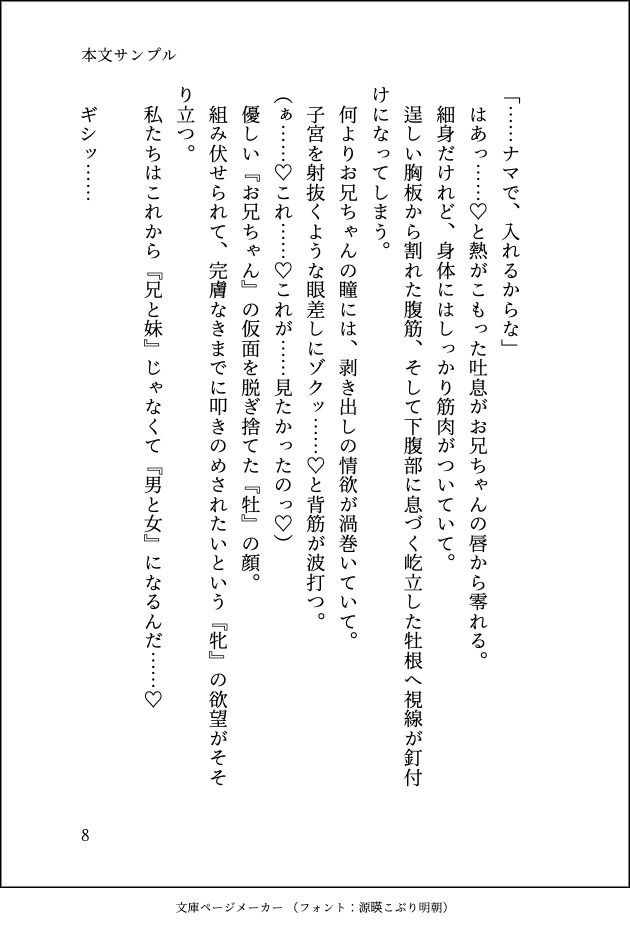 本文サンプル
「……ナマで、入れるからな」
はあっ……♡と熱がこもった吐息がお兄ちゃんの唇から零れる。
細身だけれど、身体にはしっかり筋肉がついていて。
逞しい胸板から割れた腹筋、そして下腹部に息づく屹立した牡根へ視線が釘付
けになってしまう。
何よりお兄ちゃんの瞳には、剥き出しの情欲が渦巻いていて。
子宮を射抜くような眼差しにゾクッ……♡と背筋が波打つ。
(ぁ……♡これ……♡これが……見たかったのっ♡)
優しい『お兄ちゃん』の仮面を脱ぎ捨てた『牡』の顔。
組み伏せられて、完膚なきまでに叩きのめされたいという『牝』の欲望がそそ
り立つ。
私たちはこれから『兄と妹』じゃなくて『男と女』になるんだ……♡
ギシッ……
8
文庫ページメーカー（フォント：源暎こぶり明朝）